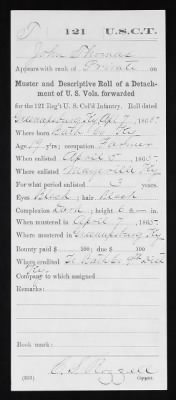 T | 121 | U.S.C.T.
John Thomas
Appears with rank of Private on
Muster and Descriptive Roll of a Detach-
ment of U. S. Vols. forwarded
for the 121 Reg't U. S. Col'd Infantry. Roll dated
Greenupsburg Ky Apr 7, 1865.
Where born Bath Co Ky
Age 19 y'rs; occupation Farmer
When enlisted April 5, 1865.
Where enlisted Maysville Ky
For what period enlisted 3 years.
Eyes Black; hair Black
Complexion Dark; height 6 ft. in.
When mustered in April 7, 1865.
Where mustered in Greenupsburg Ky
Bounty paid $ 100; due $ 100
Where credited Bath Co 9th Dist
Ky.
Company to which assigned
Remarks:
Book mark:
(333) Copyist.